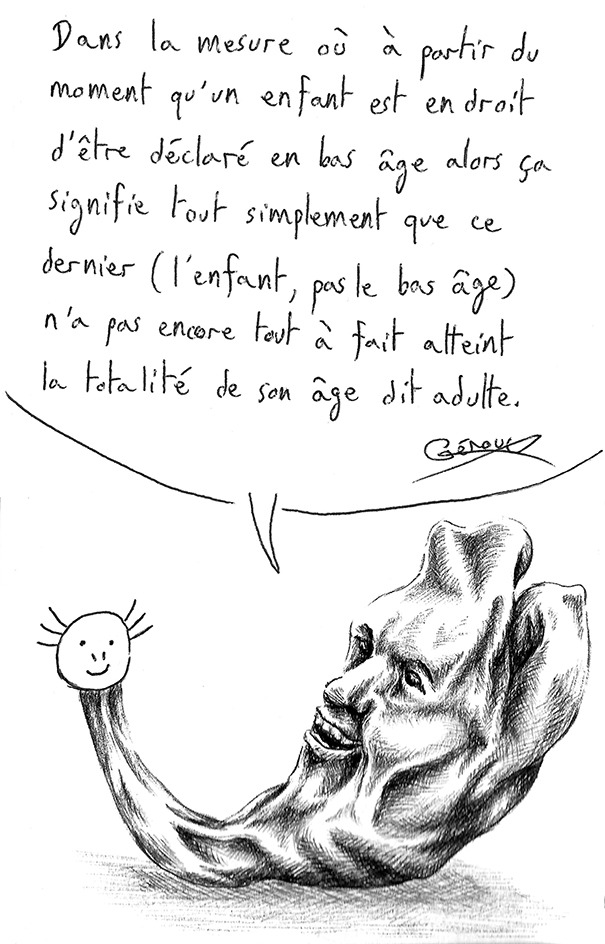 Dans la mesure où à partir du
moment qu'un enfant est en droit
d'être déclaré en bas âge alors ça
signifie tout simplement que ce
dernier (l'enfant, pas le bas âge)
n'a pas encore tout à fait atteint
la totalité de son âge dit adulte.